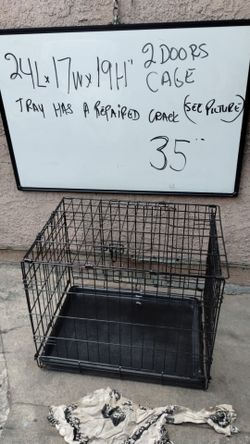 24L x 17W x 19H" 2 DOORS
CAGE
TRAY HAS A REPAIRED CRACK (SEE PICTURE)
35¨